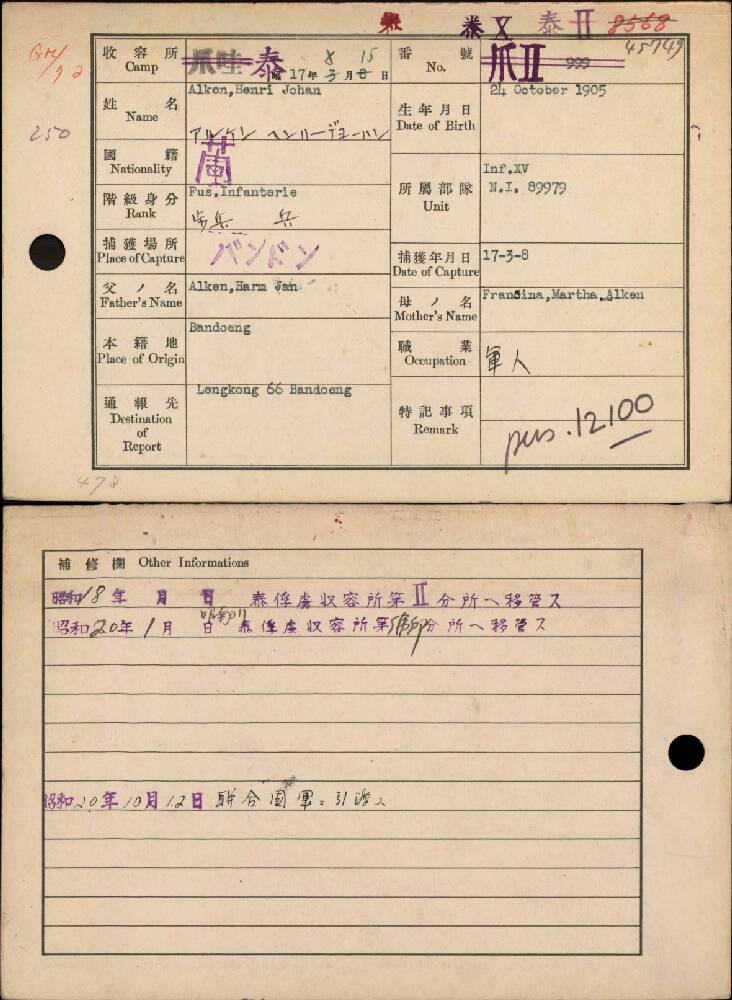 泰 X 泰 II 8568
GH/92
45749
收容所 Camp 爪哇 泰 昭 17年 3月 8日 8 15
番號 No. 爪II 999
姓名 Name Alken,Henri Johan
アルケン ヘンリーヂョーハン
生年月日 Date of Birth 24 October 1905
250
國籍 Nationality 蘭
階級身分 Rank Fus.Infanterie
歩兵 兵
所屬部隊 Unit Inf.XV
N.I. 89979
捕獲場所 Place of Capture バンドン
捕獲年月日 Date of Capture 17-3-8
父ノ名 Father's Name Alken,Harm Jan
母ノ名 Mother's Name Fransina,Martha.Alken
本籍地 Place of Origin Bandoeng
職業 Occupation 軍人
通報先 Destination of Report Lengkong 66 Bandoeng
特記事項 Remark
pus.12100
478
補修欄 Other Informations
昭和18年 月 日 泰俘虜収容所第II分所ヘ移管ス
昭和20年1月 日 泰俘虜収容所第 分所ヘ移管ス
昭和20年10月12日 聯合國軍ニ引渡ス